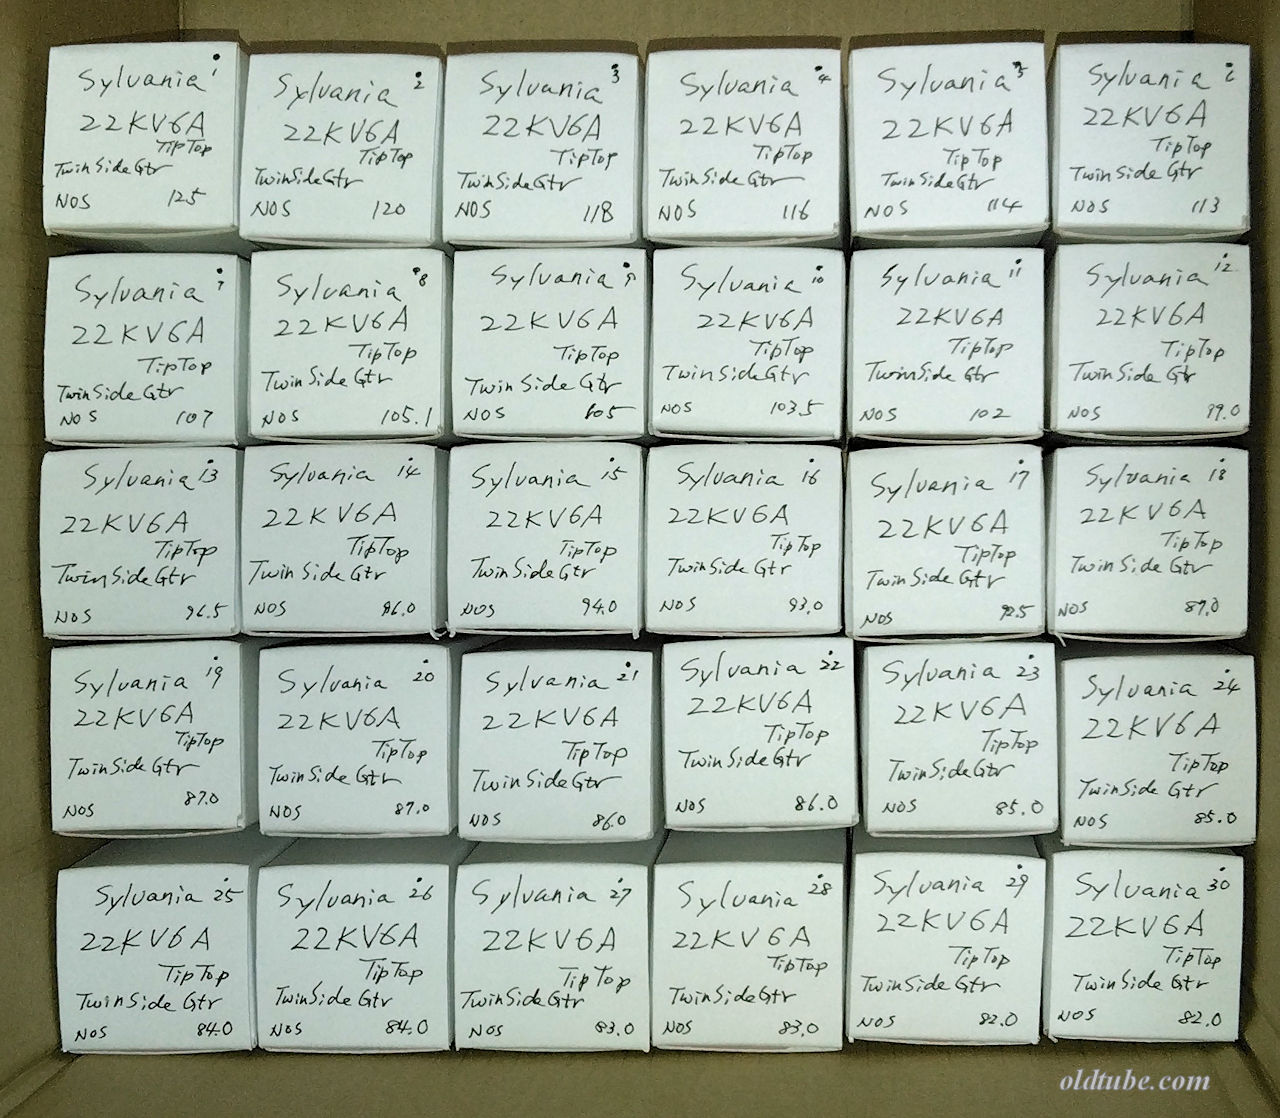 Sylvania 1
22KV6A
TipTop
Twin Side Gtr
NOS 125
Sylvania 2
22KV6A
TipTop
Twin Side Gtr
NOS 120
Sylvania 3
22KV6A
TipTop
Twin Side Gtr
NOS 118
Sylvania 4
22KV6A
TipTop
Twin Side Gtr
NOS 116
Sylvania 5
22KV6A
TipTop
Twin Side Gtr
NOS 114
Sylvania 6
22KV6A
TipTop
Twin Side Gtr
NOS 113
Sylvania 7
22KV6A
TipTop
Twin Side Gtr
NOS 107
Sylvania 8
22KV6A
TipTop
Twin Side Gtr
NOS 105.1
Sylvania 9
22KV6A
TipTop
Twin Side Gtr
NOS 105
Sylvania 10
22KV6A
TipTop
Twin Side Gtr
NOS 103.5
Sylvania 11
22KV6A
TipTop
Twin Side Gtr
NOS 102
Sylvania 12
22KV6A
TipTop
Twin Side Gtr
NOS 99.0
Sylvania 13
22KV6A
TipTop
Twin Side Gtr
NOS 96.5
Sylvania 14
22KV6A
TipTop
Twin Side Gtr
NOS
Sylvania 15
22KV6A
TipTop
Twin Side Gtr
NOS 94.0
Sylvania 16
22KV6A
TipTop
Twin Side Gtr
NOS 93.0
Sylvania 17
22KV6A
TipTop
Twin Side Gtr
NOS 92.5
Sylvania 18
22KV6A
TipTop
Twin Side Gtr
NOS
Sylvania 19
22KV6A
TipTop
Twin Side Gtr
NOS 87.0
Sylvania 20
22KV6A
TipTop
Twin Side Gtr
NOS 87.0
Sylvania 21
22KV6A
TipTop
Twin Side Gtr
NOS 86.0
Sylvania 22
22KV6A
TipTop
Twin Side Gtr
NOS 86.0
Sylvania 23
22KV6A
TipTop
Twin Side Gtr
NOS 85.0
Sylvania 24
22KV6A
TipTop
Twin Side Gtr
NOS 85.0
Sylvania 25
22KV6A
TipTop
Twin Side Gtr
NOS 84.0
Sylvania 26
22KV6A
TipTop
Twin Side Gtr
NOS 84.0
Sylvania 27
22KV6A
TipTop
Twin Side Gtr
NOS 83.0
Sylvania 28
22KV6A
TipTop
Twin Side Gtr
NOS 83.0
Sylvania 29
22KV6A
TipTop
Twin Side Gtr
NOS 82.0
Sylvania 30
22KV6A
TipTop
Twin Side Gtr
NOS 82.0
oldtube.com